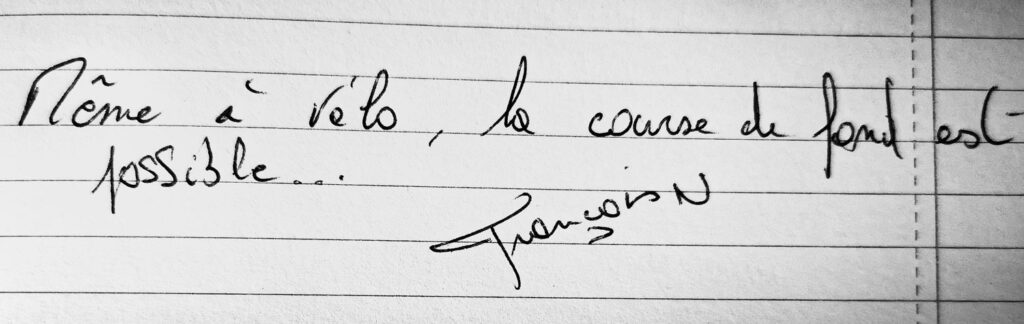 Même à vélo, la course de fond est
possible...
François N